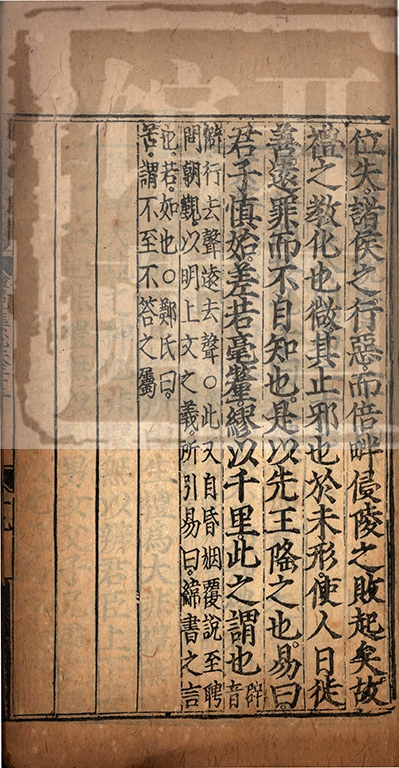 位失諸侯之行惡而倍畔侵陵之敗起矣故
禮之教化也微其止邪也於未形使人日徙
善遠罪而不自知也是以先王隆之也易曰
君子慎始差若毫釐繆以千里此之謂也辟音
僻行去聲遠去聲○此又自昏姻覆說至聘
問朝覲以明上文之義所引易曰緯書之言
也若如也○鄭氏曰
苦謂不至不答之屬